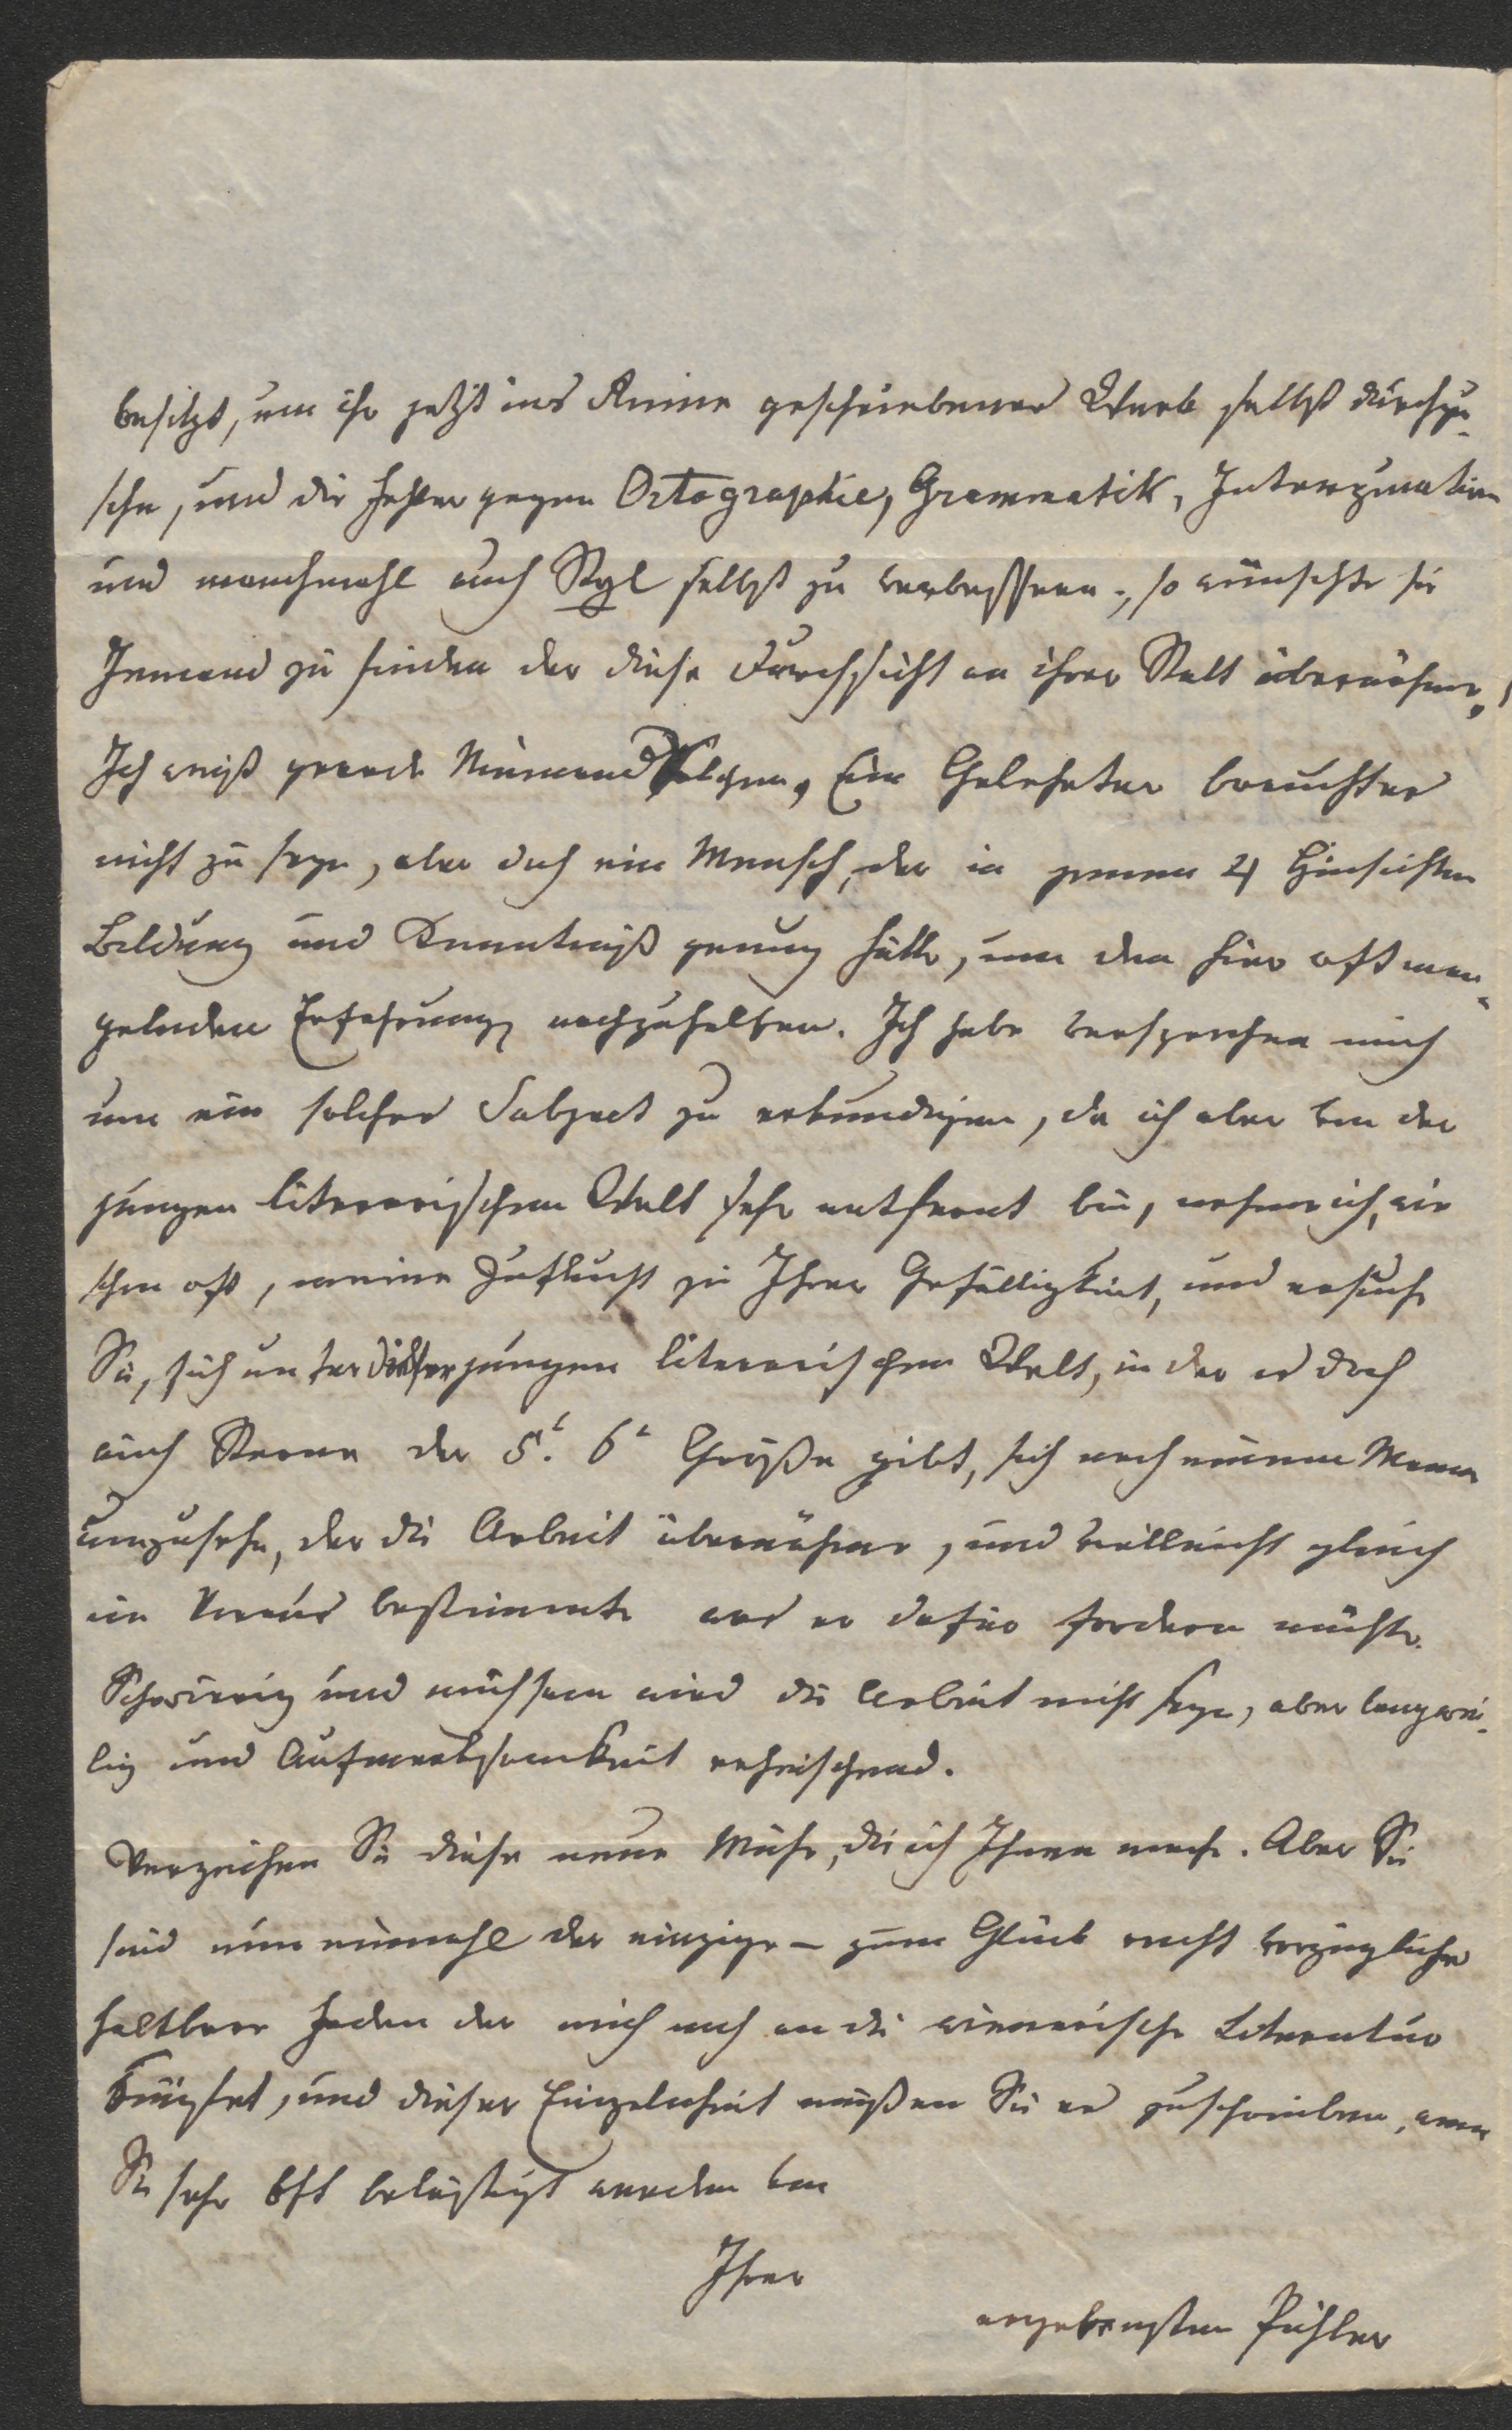 besitzt, um ihr jetzt ins Reine geschriebenes Werk selbst durchzu-
sehn, und die Fehler gegen Ortographie, Grammatik, Interpunktion
und manchmahl auch Styl selbst zu verbessern; so wünschte sie
Jemand zu finden der diese Durchsicht an ihrer Statt übernähme,
Ich weiß gerade Niemand solchen, Ein Gelehrter brauchter
nicht zu seyn, aber doch ein Mensch, der in jenen 4 Hinsichten
Bildung und Kenntniß genug hätte, um den hier oft man-
gelnden Erfahrung nachzuhelfen. Ich habe versprochen mich
um ein solches Subject zu erkundigen, da ich aber von der
jungen literarischen Welt sehr entfernt bin, nehme ich, wie
schon oft, meine Zuflucht zu Ihrer Gefälligkeit, und ersuche
Sie, sich unter dieser jungen literarischen Welt, in der es doch
auch Sterne der 5t. 6t Größe gibt, sich nach einem Mann
umzusehn, der die Arbeit übernähme, und vielleicht gleich
im Voraus bestimmte was er dafür fordern möchte.
Schwierig und mühsam wird die Arbeit nicht seyn, aber langwei-
lig und Aufmerksamkeit erheischend.
Verzeihen Sie diese neue Mühe, die ich Ihnen mache. Aber Sie
sind nun einmahl der einzige – zum Glück recht vorzügliche
haltbare Faden der mich noch an die wienerische Literatur
knüpfet, und dieser Einzelnheit müßen Sie es zuschreiben, wenn
Sie sehr oft belästigt werden von
Ihrer
ergebensten Pichler